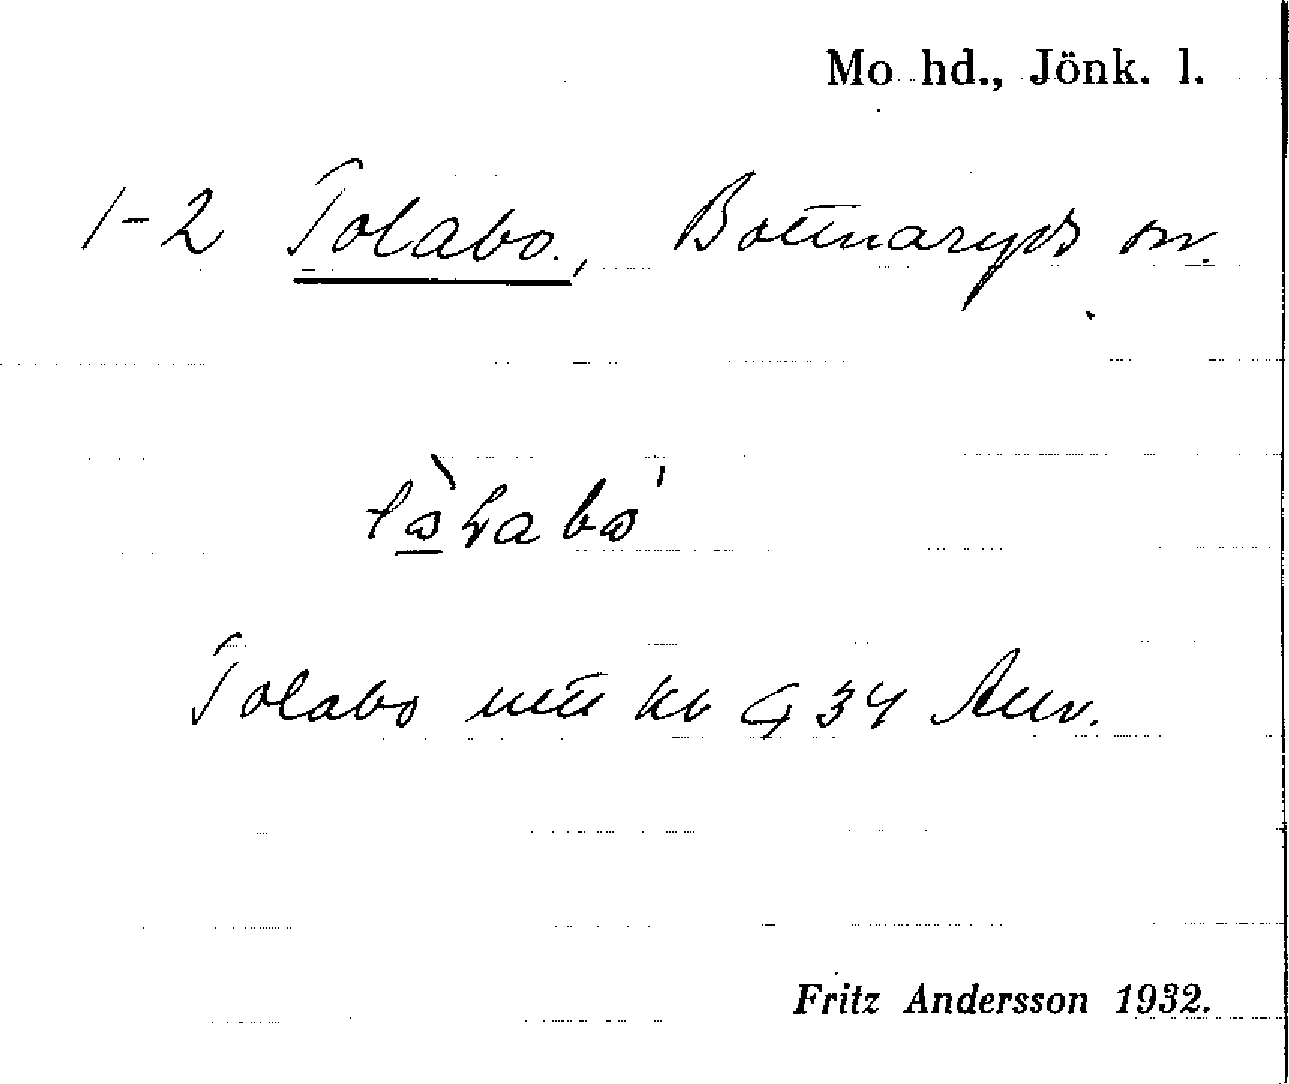 Mo hd., Jönk. l.
1-2 Tolabo., Bottnaryds sn.
Tolabo mtl kb G 34 Anv.
Fritz Andersson 1932.